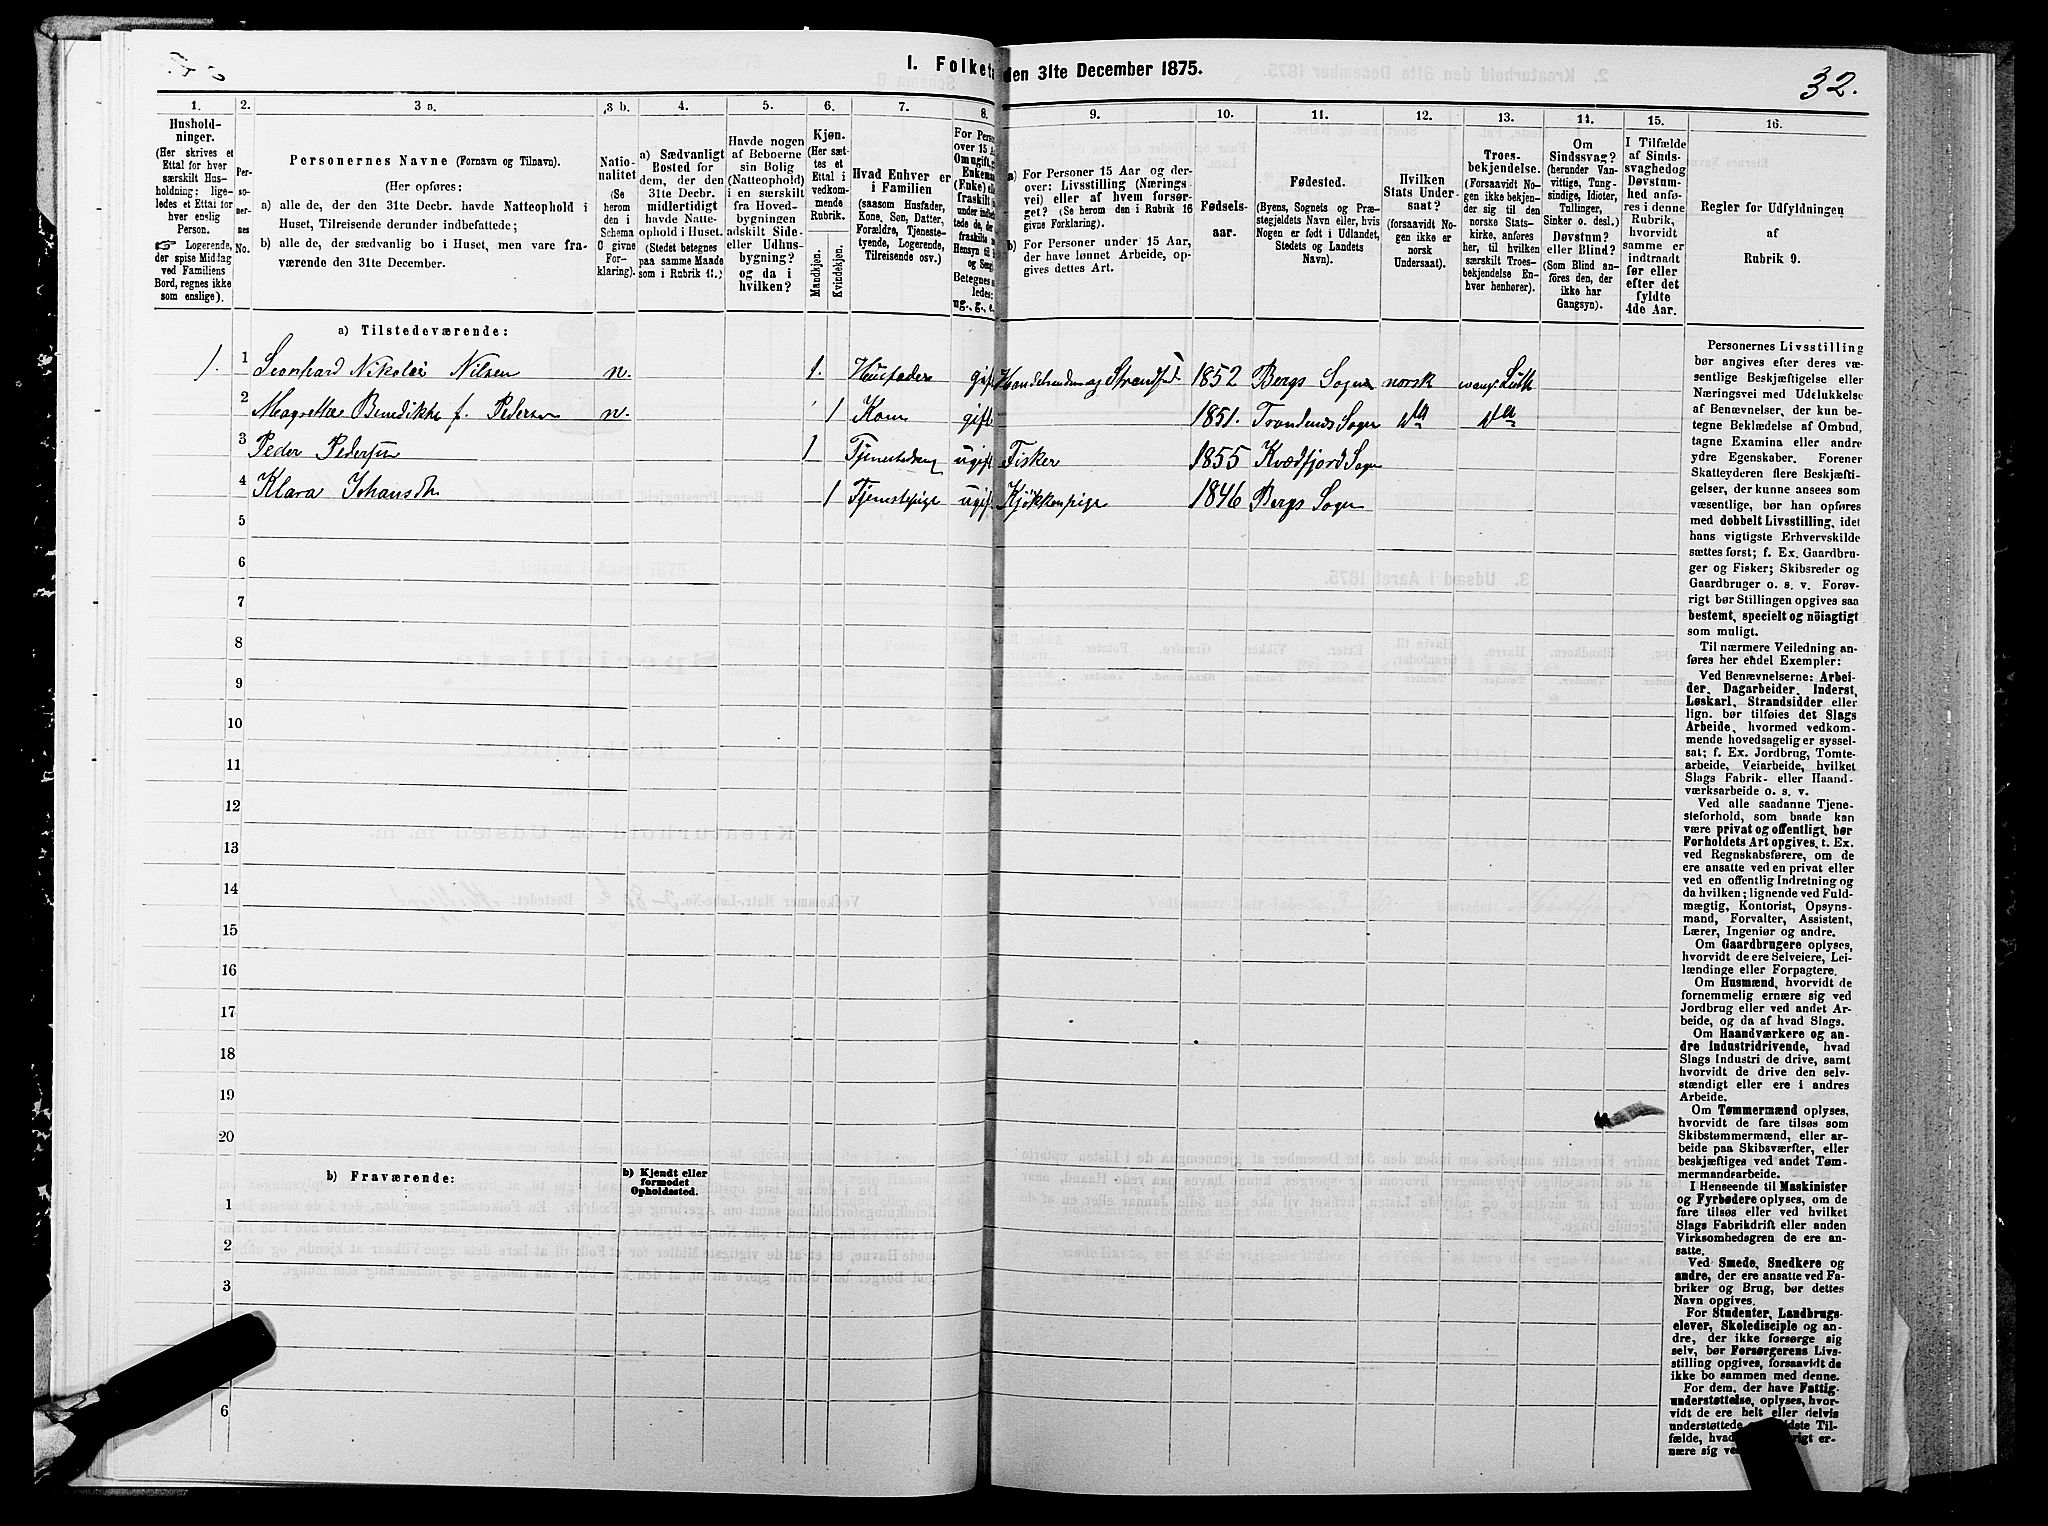 1. Folket
den 31te December 1875.
32.
1.
Hushold-
ninger.
(Her skrives et
Ettal for hver
særskilt Hus-
holdning; lige-
ledes et Ettal for
hver enslig
Person.
☞ Logerende,
der spise Middag
ved Familiens
Bord, regnes ikke
som enslige).
2.
Per-
so-
ner-
nes
No.
3 a.
Personernes Navne (Fornavn og Tilnavn).
(Her opføres:
a) alle de, der den 31te Decbr. havde Natteophold i
Huset, Tilreisende derunder indbefattede;
b) alle de, der sædvanlig bo i Huset, men vare fra-
værende den 31te December.
3 b.
Natio-
nalitet
(Se
herom
den i
Schema
C givne
For-
klaring).
4.
a) Sædvanligt
Bosted for
dem, der den
31te Decbr.
midlertidigt
havde Natte-
ophold i Huset.
(Stedet betegnes
paa samme Maade
som i Rubrik 11.)
5.
Havde nogen
af Beboerne
sin Bolig
(Natteophold)
i en særskilt
fra Hoved-
bygningen
adskilt Side-
eller Udhus-
bygning?
og da i
hvilken?
6.
Kjøn.
(Her sæt-
tes et
Ettal i
vedkom-
mende
Rubrik.
Mandkjøn.
Kvindekjøn.
7.
Hvad Enhver er
i Familien
(saasom Husfader,
Kone, Søn, Datter,
Forældre, Tjeneste-
tyende, Logerende,
Tilreisende osv.)
8.
For Pers
over 15 A
Om ugift, g
Enkema
(Enke) ell
fraskilt s
under indbef
tede de, de
fraskilte m
Hensyn til B
og Seng
Betegnes s
ledes:
ug., g., e.
9.
a) For Personer 15 Aar og der-
over: Livsstilling (Nærings-
vei) eller af hvem forsør-
get? (Se herom den i Rubrik 16
givne Forklaring).
b) For Personer under 15 Aar,
der have lønnet Arbeide, op-
gives dettes Art.
10.
Fødsels-
aar.
11.
Fødested.
(Byens, Sognets og Præ-
stegjeldets Navn eller, hvis
Nogen er født i Udlandet,
Stedets og Landets
Navn).
12.
Hvilken
Stats Under-
saat?
(forsaavidt No-
gen ikke er
norsk
Undersaat).
13.
Troes-
bekjendelse.
(Forsaavidt No-
gen ikke bekjen-
der sig til den
norske Stats-
kirke, anføres
her, til hvilken
særskilt Troes-
bekjendelse En-
hver henhører).
14.
Om
Sindssvag?
(herunder Van-
vittige, Tung-
sindige, Idioter,
Tullinger,
Sinker o. desl.)
Døvstum?
eller Blind?
(Som Blind an-
føres den, der
ikke har
Gangsyn).
15.
I Tilfælde
af Sinds-
svaghed og
Døvstum-
hed anfø-
res i denne
Rubrik,
hvorvidt
samme er
indtraadt
før eller
efter det
fyldte
4de Aar.
16.
Regler for Udfyldningen
af
Rubrik 9.
a) Tilstedeværende:
1. 1 Leonhard Nikolai Nilsen n. 1. Husfader gift Handelsmand og Strandsid. 1852 Bergs Sogn norsk evang. Luth
2 Magrethe Benedikte f. Pedersen n. 1 Kone gift 1851. Trondenes Sogn do do
3 Peder Pedersen 1 Tjenestedreng ugift Fisker 1855 Kvædfjord Sogn
4 Klara Johansdtr 1 Tjenestepige ugift Kjøkkenpige 1846 Bergs Sogn
5
6
7
8
9
10
11
12
13
14
15
16
17
18
19
20
b) Fraværende:
b) Kjendt eller
formodet
Opholdssted.
1
2
3
6
Personernes Livsstilling
bør angives efter deres væ-
sentlige Beskjæftigelse eller
Næringsvei med Udelukkelse
af Benævnelser, der kun be-
tegne Beklædelse af Ombud,
tagne Examina eller andre
ydre Egenskaber. Forener
Skatteyderen flere Beskjæfti-
gelser, der kunne ansees som
væsentlige, bør han opføres
med dobbelt Livsstilling, idet
hans vigtigste Erhvervskilde
sættes først; f. Ex. Gaardbru-
ger og Fisker; Skibsreder og
Gaardbruger o. s. v. Forøv-
rigt bør Stillingen opgives saa
bestemt, specielt og nöiagtigt
som muligt.
Til nærmere Veiledning an-
føres her endel Exempler:
Ved Benævnelserne: Arbei-
der, Dagarbeider, Inderst,
Løskarl, Strandsidder eller
lign. bør tilføies det Slags
Arbeide, hvormed vedkom-
mende hovedsagelig er syssel-
sat; f. Ex. Jordbrug, Tomte-
arbeide, Veiarbeide, hvilket
Slags Fabrik- eller Haand-
værksarbeide o. s. v.
Ved alle saadanne Tjene-
steforhold, som baade kan
være privat og offentligt, bør
Forholdets Art opgives, t. Ex.
ved Regnskabsførere, om de
ere ansatte ved en privat eller
ved en offentlig Indretning og
da hvilken; lignende ved Fuld-
mægtig, Kontorist, Opsyns-
mand, Forvalter, Assistent,
Lærer, Ingeniør og andre.
Om Gaardbrugere oplyses,
hvorvidt de ere Selveiere, Lei-
lændinge eller Forpagtere.
Om Husmænd, hvorvidt de
fornemmelig ernære sig ved
Jordbrug eller ved andet Ar-
beide, og da af hvad Slags.
Om Haandværkere og an-
dre Industridrivende, hvad
Slags Industri de drive, samt
hvorvidt de drive den selv-
stændigt eller ere i andres
Arbeide.
Om Tømmermænd oplyses,
hvorvidt de fare tilsøs som
Skibstømmermænd, eller ar-
beide paa Skibsværfter, eller
beskjæftiges ved andet Tøm-
mermandsarbeide.
I Henseende til Maskinister
og Fyrbødere oplyses, om de
fare tilsøs eller ved hvilket
Slags Fabrikdrift eller anden
Virksomhedsgren de ere an-
satte.
Ved Smede, Snedkere og
andre, der ere ansatte ved Fa-
briker og Brug, bør dettes
Navn opgives.
For Studenter, Landbrugs-
elever, Skoledisciple og an-
dre, der ikke forsørge sig
selv, bør Forsørgerens Livs-
stilling opgives, forsaavidt de
ikke bo sammen med denne.
For dem, der have Fattig-
understøttelse, oplyses, hvor-
vidt de ere helt eller delvis
understøttede